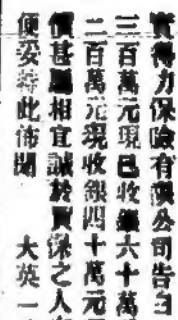 得力保險有限公司告
三百萬元現已收銀六十萬
二百萬元現收銀四十萬元
價甚屬相宜誠於買保之人
便妥特此佈聞 大英一